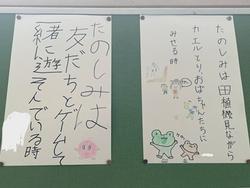 たのしみは田植機見ながら
カエルとり、おばちゃんたちに
みせる時
たのしみは
友だちとゲームして
一緒に遊そんでいる時